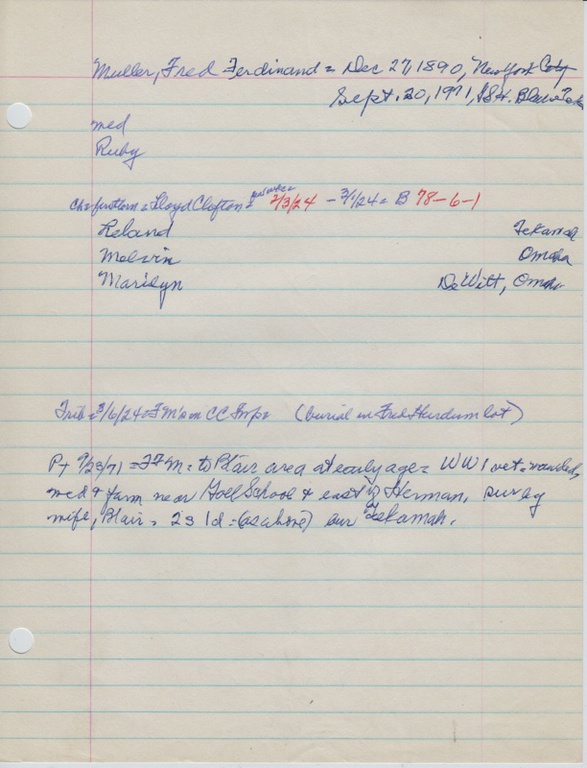 Muller, Fred Ferdinand = Dec 27, 1890, New York City
Sept. 20, 1971, Blair
med
Ruby
Lloyd Clifton = 2/3/24 - 3/1/24 = B 78-6-1
Leland Tekamah
Melvin Omaha
Marilyn DeWitt, Omaha
Trib = 3/6/24 = F M's on CC (burial in Fred Hurdum lot)
PT 9/23/71 = FFM = to Blair area at early age = WW1 vet = wounded,
med & farm near Goll School & east of Herman, sur by
wife, Blair, 2s 1d = (as above) bur Tekamah.